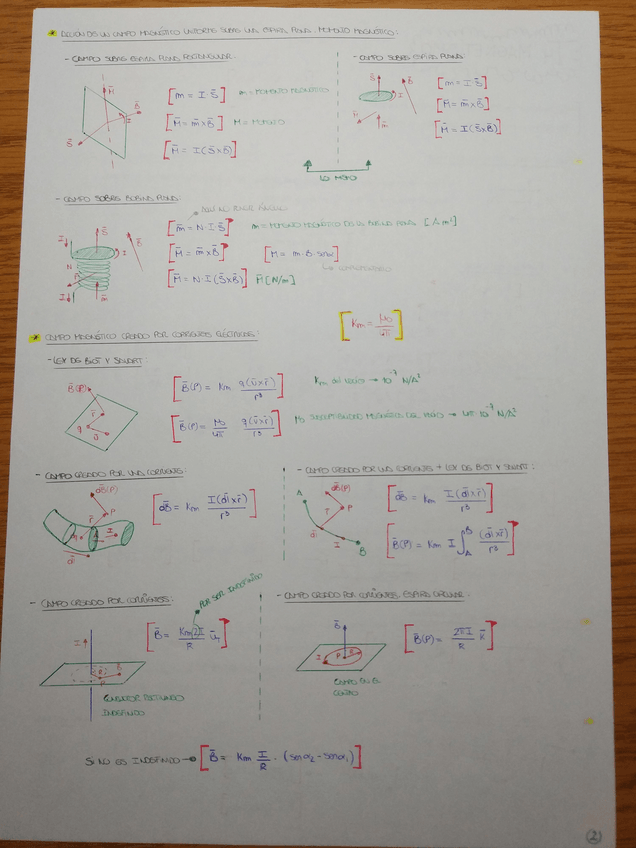 * ACCIÓN DE UN CAMPO MAGNÉTICO UNIFORME SOBRE UNA ESPIRA PLANA. MOMENTO MAGNÉTICO:
- CAMPO SOBRE ESPIRA PLANA RECTANGULAR:
[m̄ = I·S̄] m = MOMENTO MAGNÉTICO
[M̄ = m̄ x B̄] M = MOMENTO
[M̄ = I(S̄xB̄)]
M̄
B̄
I
S̄
- CAMPO SOBRE ESPIRA PLANA:
[m̄ = I·S̄]
[M̄ = m̄ x B̄]
[M̄ = I(S̄xB̄)]
S̄
B̄
I
M̄
m̄
LO MISMO
- CAMPO SOBRE BOBINA PLANA:
[m̄ = N·I·S̄] m = MOMENTO MAGNÉTICO DE LA BOBINA PLANA [A m²]
[M̄ = m̄ x B̄] [M = m·B·senα]
[M̄ = N·I(S̄xB̄)] M̄ [N/m]
I
S̄
B̄
I
N
I
m̄
[Km = μ₀/4π]
* CAMPO MAGNÉTICO CREADO POR CORRIENTES ELÉCTRICAS:
- LEY DE BIOT Y SAVART:
B̄(P)
r̄
q
v̄
[B̄(P) = Km q(v̄xr̄)/r³] Km del vacío → 10⁻⁷ N/A²
[B̄(P) = μ₀/4π q(v̄xr̄)/r³] μ₀ SUSCEPTIBILIDAD MAGNÉTICA DEL VACÍO → 4π·10⁻⁷ N/A²
- CAMPO CREADO POR UNA CORRIENTE:
dB̄(P)
P
r̄
I
dl̄
[dB̄ = Km I(dl̄xr̄)/r³]
- CAMPO CREADO POR UNA CORRIENTE + LEY DE BIOT Y SAVART:
A
dB̄(P)
P
r̄
dl̄
I
B
[dB̄ = Km I(dl̄xr̄)/r³]
[B̄(P) = Km I ∫_A^B (dl̄xr̄)/r³]
- CAMPO CREADO POR CORRIENTES:
POR SER INDEFINIDO
[B̄ = Km 2I/R ū_τ]
I
R
P
B̄
CONDUCTOR RECTILÍNEO
INDEFINIDO
- CAMPO CREADO POR CORRIENTES ESPIRA CIRCULAR:
B̄
I
P
R
[B(P) = 2πI/R k̄]
CAMPO EN EL
CENTRO
SI NO ES INDEFINIDO → [B̄ = Km I/R · (senα₂ - senα₁)]
2